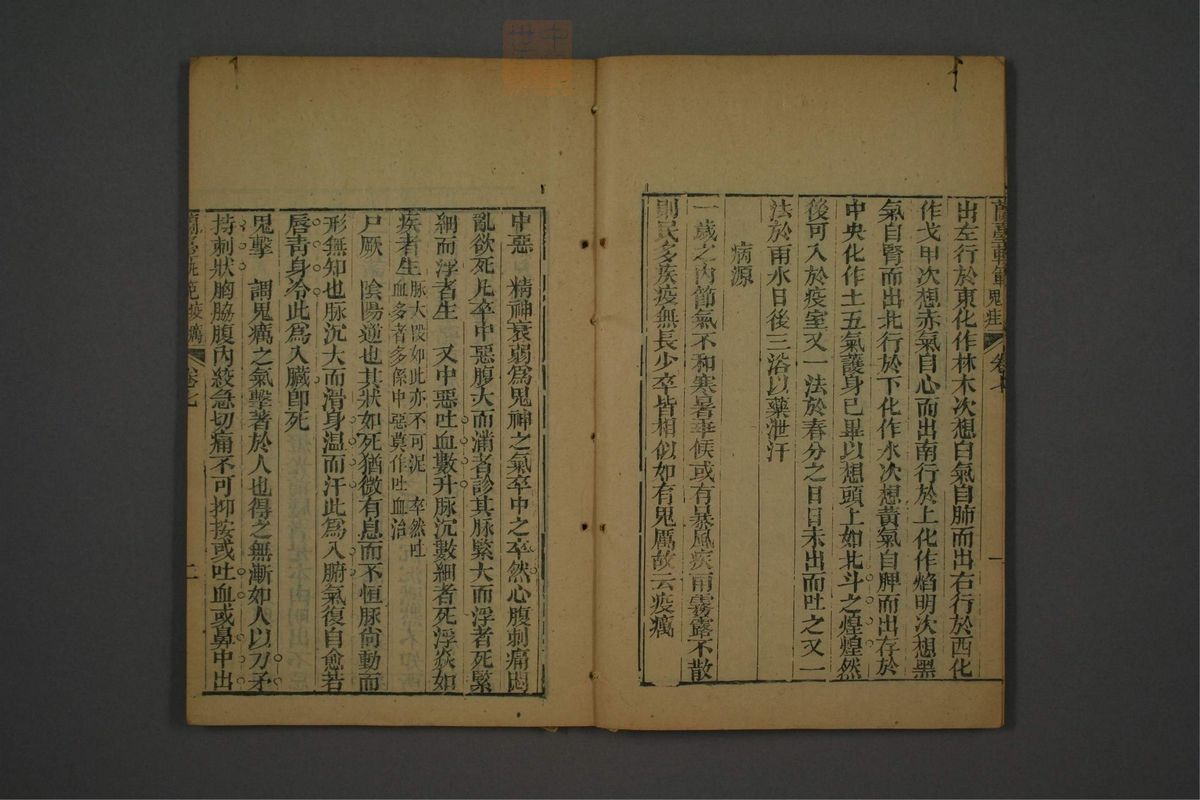 蘭臺軌範 鬼疰 卷七 一
出左行於東化作林木次想白氣自肺而出右行於西化
作戈甲次想赤氣自心而出南行於上化作焰明次想黑
氣自腎而出北行於下化作水次想黃氣自脾而出存於
中央化作土五氣護身已畢以想頭上如北斗之煌煌然
後可入於疫室又一法於春分之日日未出而吐之又一
法於雨水日後三浴以藥泄汗
病源
一歲之內節氣不和寒暑乖候或有暴風疾雨霧露不散
則民多疾疫無長少卒皆相似如有鬼厲故云疫癘
中惡 精神衰弱為鬼神之氣卒中之卒然心腹刺痛悶
亂欲死凡卒中惡腹大而滿者診其脉緊大而浮者死緊
細而浮者生 又中惡吐血數升脉沉數細者死浮焱如
疾者生脉大段如此亦不可泥 卒然吐
血多者多係中惡莫作吐血治
尸厥 陰陽逆也其狀如死猶微有息而不恒脉尙動而
形無知也脉沉大而滑身温而汗此爲入腑氣復自愈若
唇青身冷此爲入臟卽死
鬼擊 謂鬼癘之氣擊著於人也得之無漸如人以刀矛
持刺狀胸脇腹內絞急切痛不可抑按或吐血或鼻中出
蘭臺軌範 疫癘 卷七 二